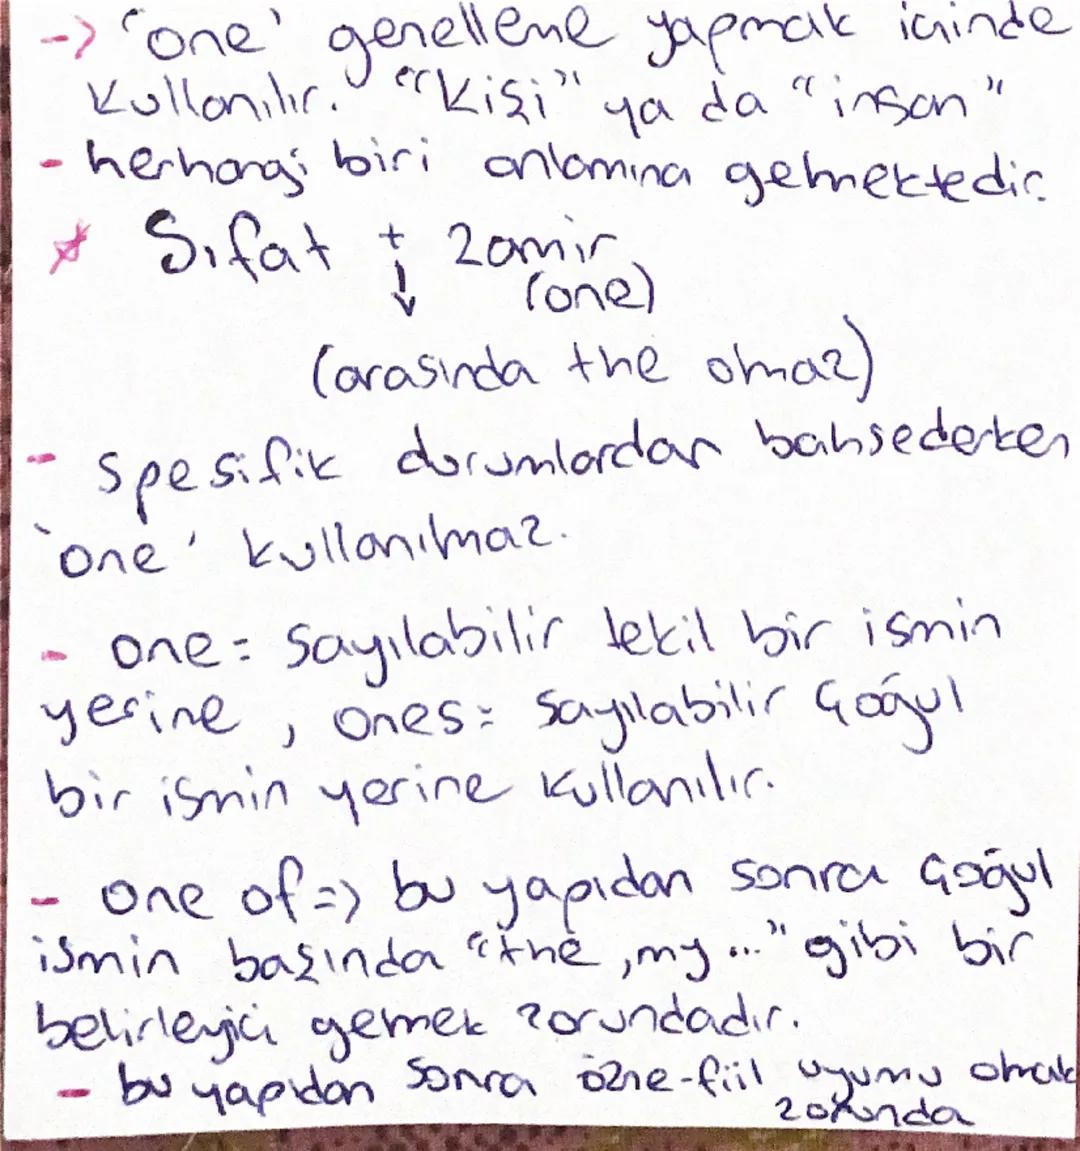 -> 'one' genelleme yapmak içinde
kullanılır. "Kişi" ya da "insan"
- herhangi biri anlamına gelmektedir.
* Sıfat + zamir
↓ (one)
(arasında the olmaz)
- spesifik durumlardan bahsederken
'one' kullanılmaz.
- one = sayılabilir tekil bir ismin
yerine, ones = sayılabilir çoğul
bir ismin yerine kullanılır.
- one of => bu yapıdan sonra çoğul
ismin başında "the, my ..." gibi bir
belirleyici gemek zorundadır.
- bu yapıdan sonra özne-fiil uyumu olmak
zorunda